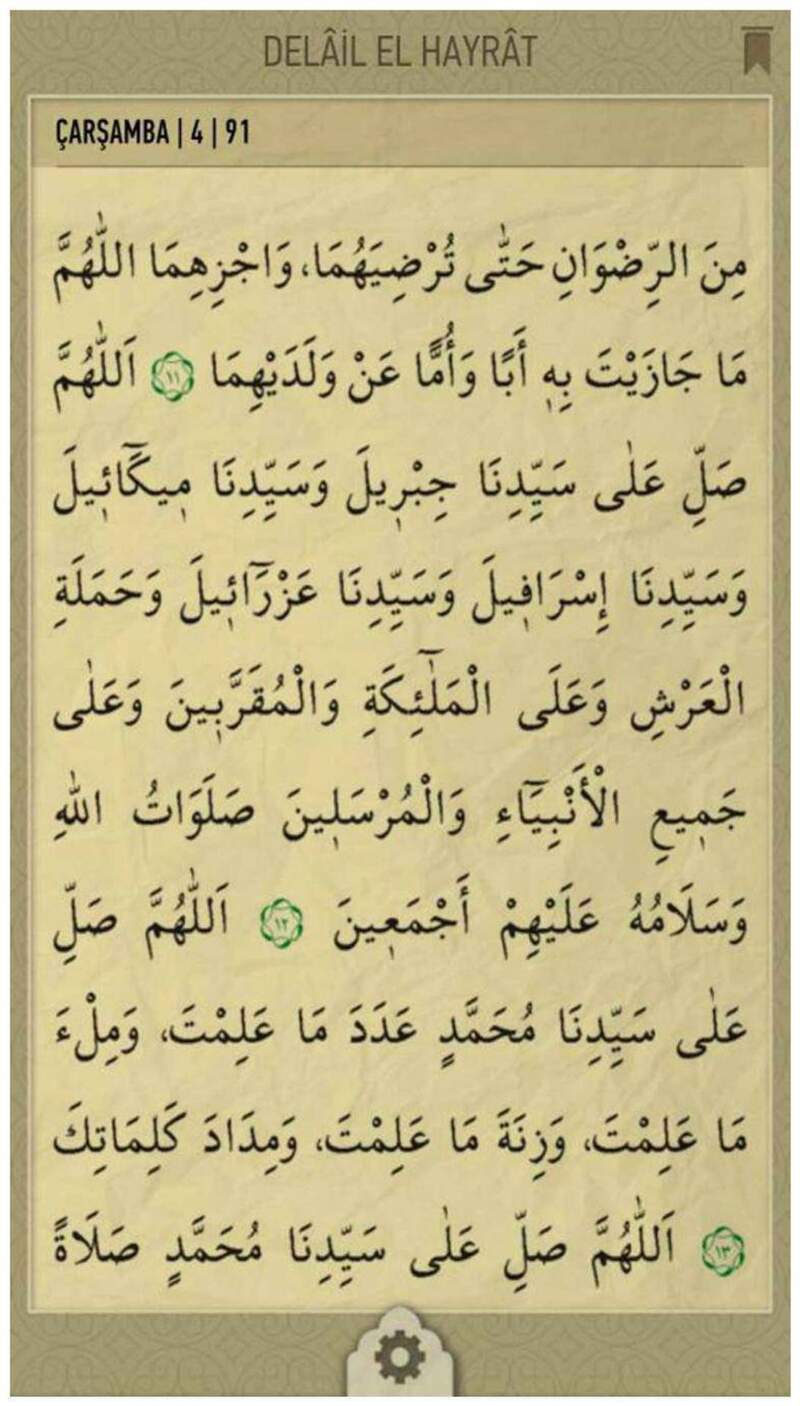 DELÂİL EL HAYRÂT
ÇARŞAMBA | 4 | 91
مِنَ الرِّضْوَانِ حَتّٰى تُرْضِيَهُمَا، وَاجْزِهِمَا اللّٰهُمَّ
مَا جَازَيْتَ بِهٖ أَبًا وَأُمًّا عَنْ وَلَدَيْهِمَا ﴿١١﴾ اَللّٰهُمَّ
صَلِّ عَلٰى سَيِّدِنَا جِبْرٖيلَ وَسَيِّدِنَا مٖيكَٓائٖيلَ
وَسَيِّدِنَا إِسْرَافٖيلَ وَسَيِّدِنَا عَزْرَٓائٖيلَ وَحَمَلَةِ
الْعَرْشِ وَعَلَى الْمَلٰٓئِكَةِ وَالْمُقَرَّبٖينَ وَعَلٰى
جَمٖيعِ الْأَنْبِيَٓاءِ وَالْمُرْسَلٖينَ صَلَوَاتُ اللّٰهِ
وَسَلَامُهُ عَلَيْهِمْ أَجْمَعٖينَ ﴿١٢﴾ اَللّٰهُمَّ صَلِّ
عَلٰى سَيِّدِنَا مُحَمَّدٍ عَدَدَ مَا عَلِمْتَ، وَمِلْءَ
مَا عَلِمْتَ، وَزِنَةَ مَا عَلِمْتَ، وَمِدَادَ كَلِمَاتِكَ
﴿١٣﴾ اَللّٰهُمَّ صَلِّ عَلٰى سَيِّدِنَا مُحَمَّدٍ صَلَاةً